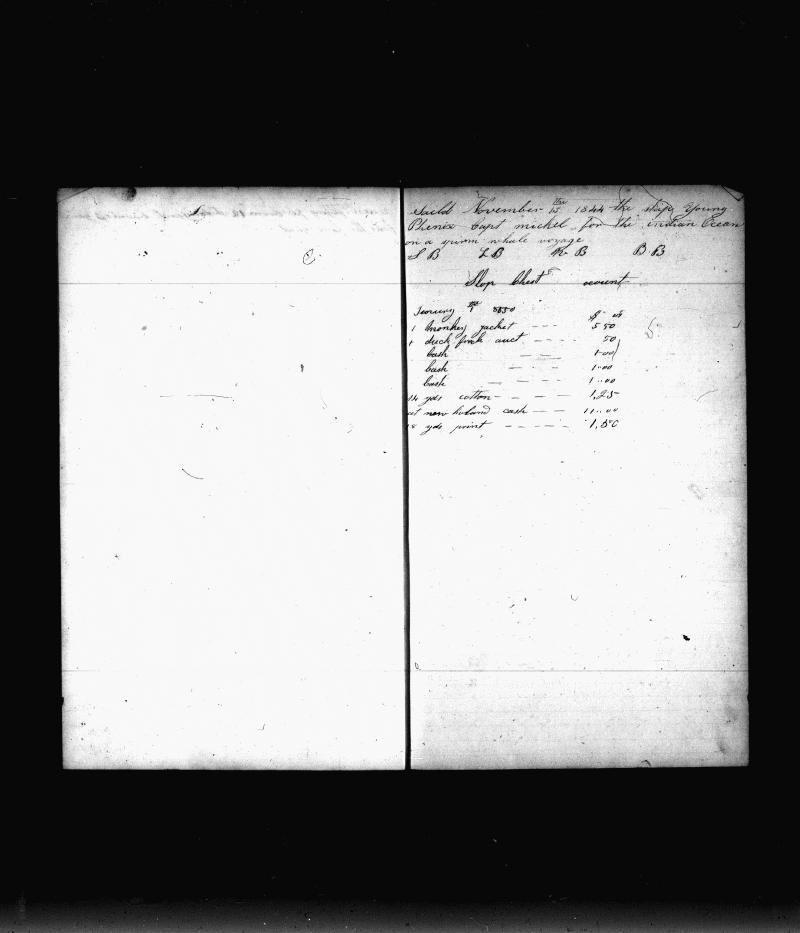 Saild November the 15 1844 the ship Young
Phenix Capt michel for the indian Ocean
on a sperm whale voyage
S B L B W B B B
Slop Chest acount
$ cts
1 monkey jacket --- 5 50
1 duck frock auct --- 50
Cash --- 1-00
Cash --- 1-00
Cash --- 1-00
14 yds cotton --- 1,25
at new holand cash --- 11-00
18 yds print --- 1,50